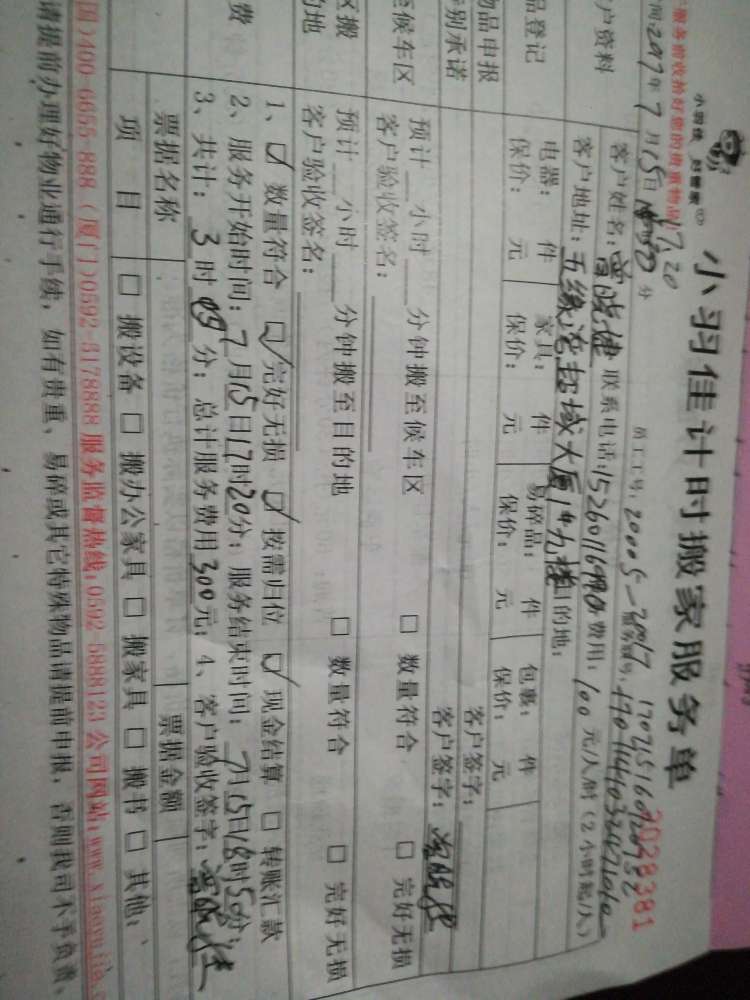 小羽佳计时搬家服务单
小羽佳
2028381
服务前收拾好您的贵重物品
员工工号: 20005-20017
2017年7月15日
户资料
客户姓名: 曾晓捷 联系电话: 费用: 100 元/人/时 (2小时起/人)
客户地址: 五缘湾超域大厦 目的地:
品登记
电器: 件 家具: 件 易碎品: 件 包裹: 件
保价: 元 保价: 元 保价: 元 保价: 元
物品申报
客户签字:
特别承诺
客户签字: 曾晓捷
至候车区
预计 小时 分钟搬至候车区 □ 数量符合 □ 完好无损
客户验收签名:
区搬
的地
预计 小时 分钟搬至目的地 □ 数量符合 □ 完好无损
客户验收签名:
费
1、☑ 数量符合 ☑ 完好无损 ☑ 按需归位 ☑ 现金结算 □ 转账汇款
2、服务开始时间: 7月15日17时20分; 服务结束时间: 7月15日18时50分;
3、共计: 3 时 分; 总计服务费用 300 元; 4、客户验收签字: 曾晓捷
票据名称 票据金额
项 目 □ 搬设备 □ 搬办公家具 □ 搬家具 □ 搬书 □ 其他:
国)400-6655-888 (厦门)0592-5178888 服务监督热线:0592-5888123 公司网站:www.xiaoyujia.c
请提前办理好物业通行手续, 如有贵重、易碎或其它特殊物品请提前申报, 否则我司不予负责。